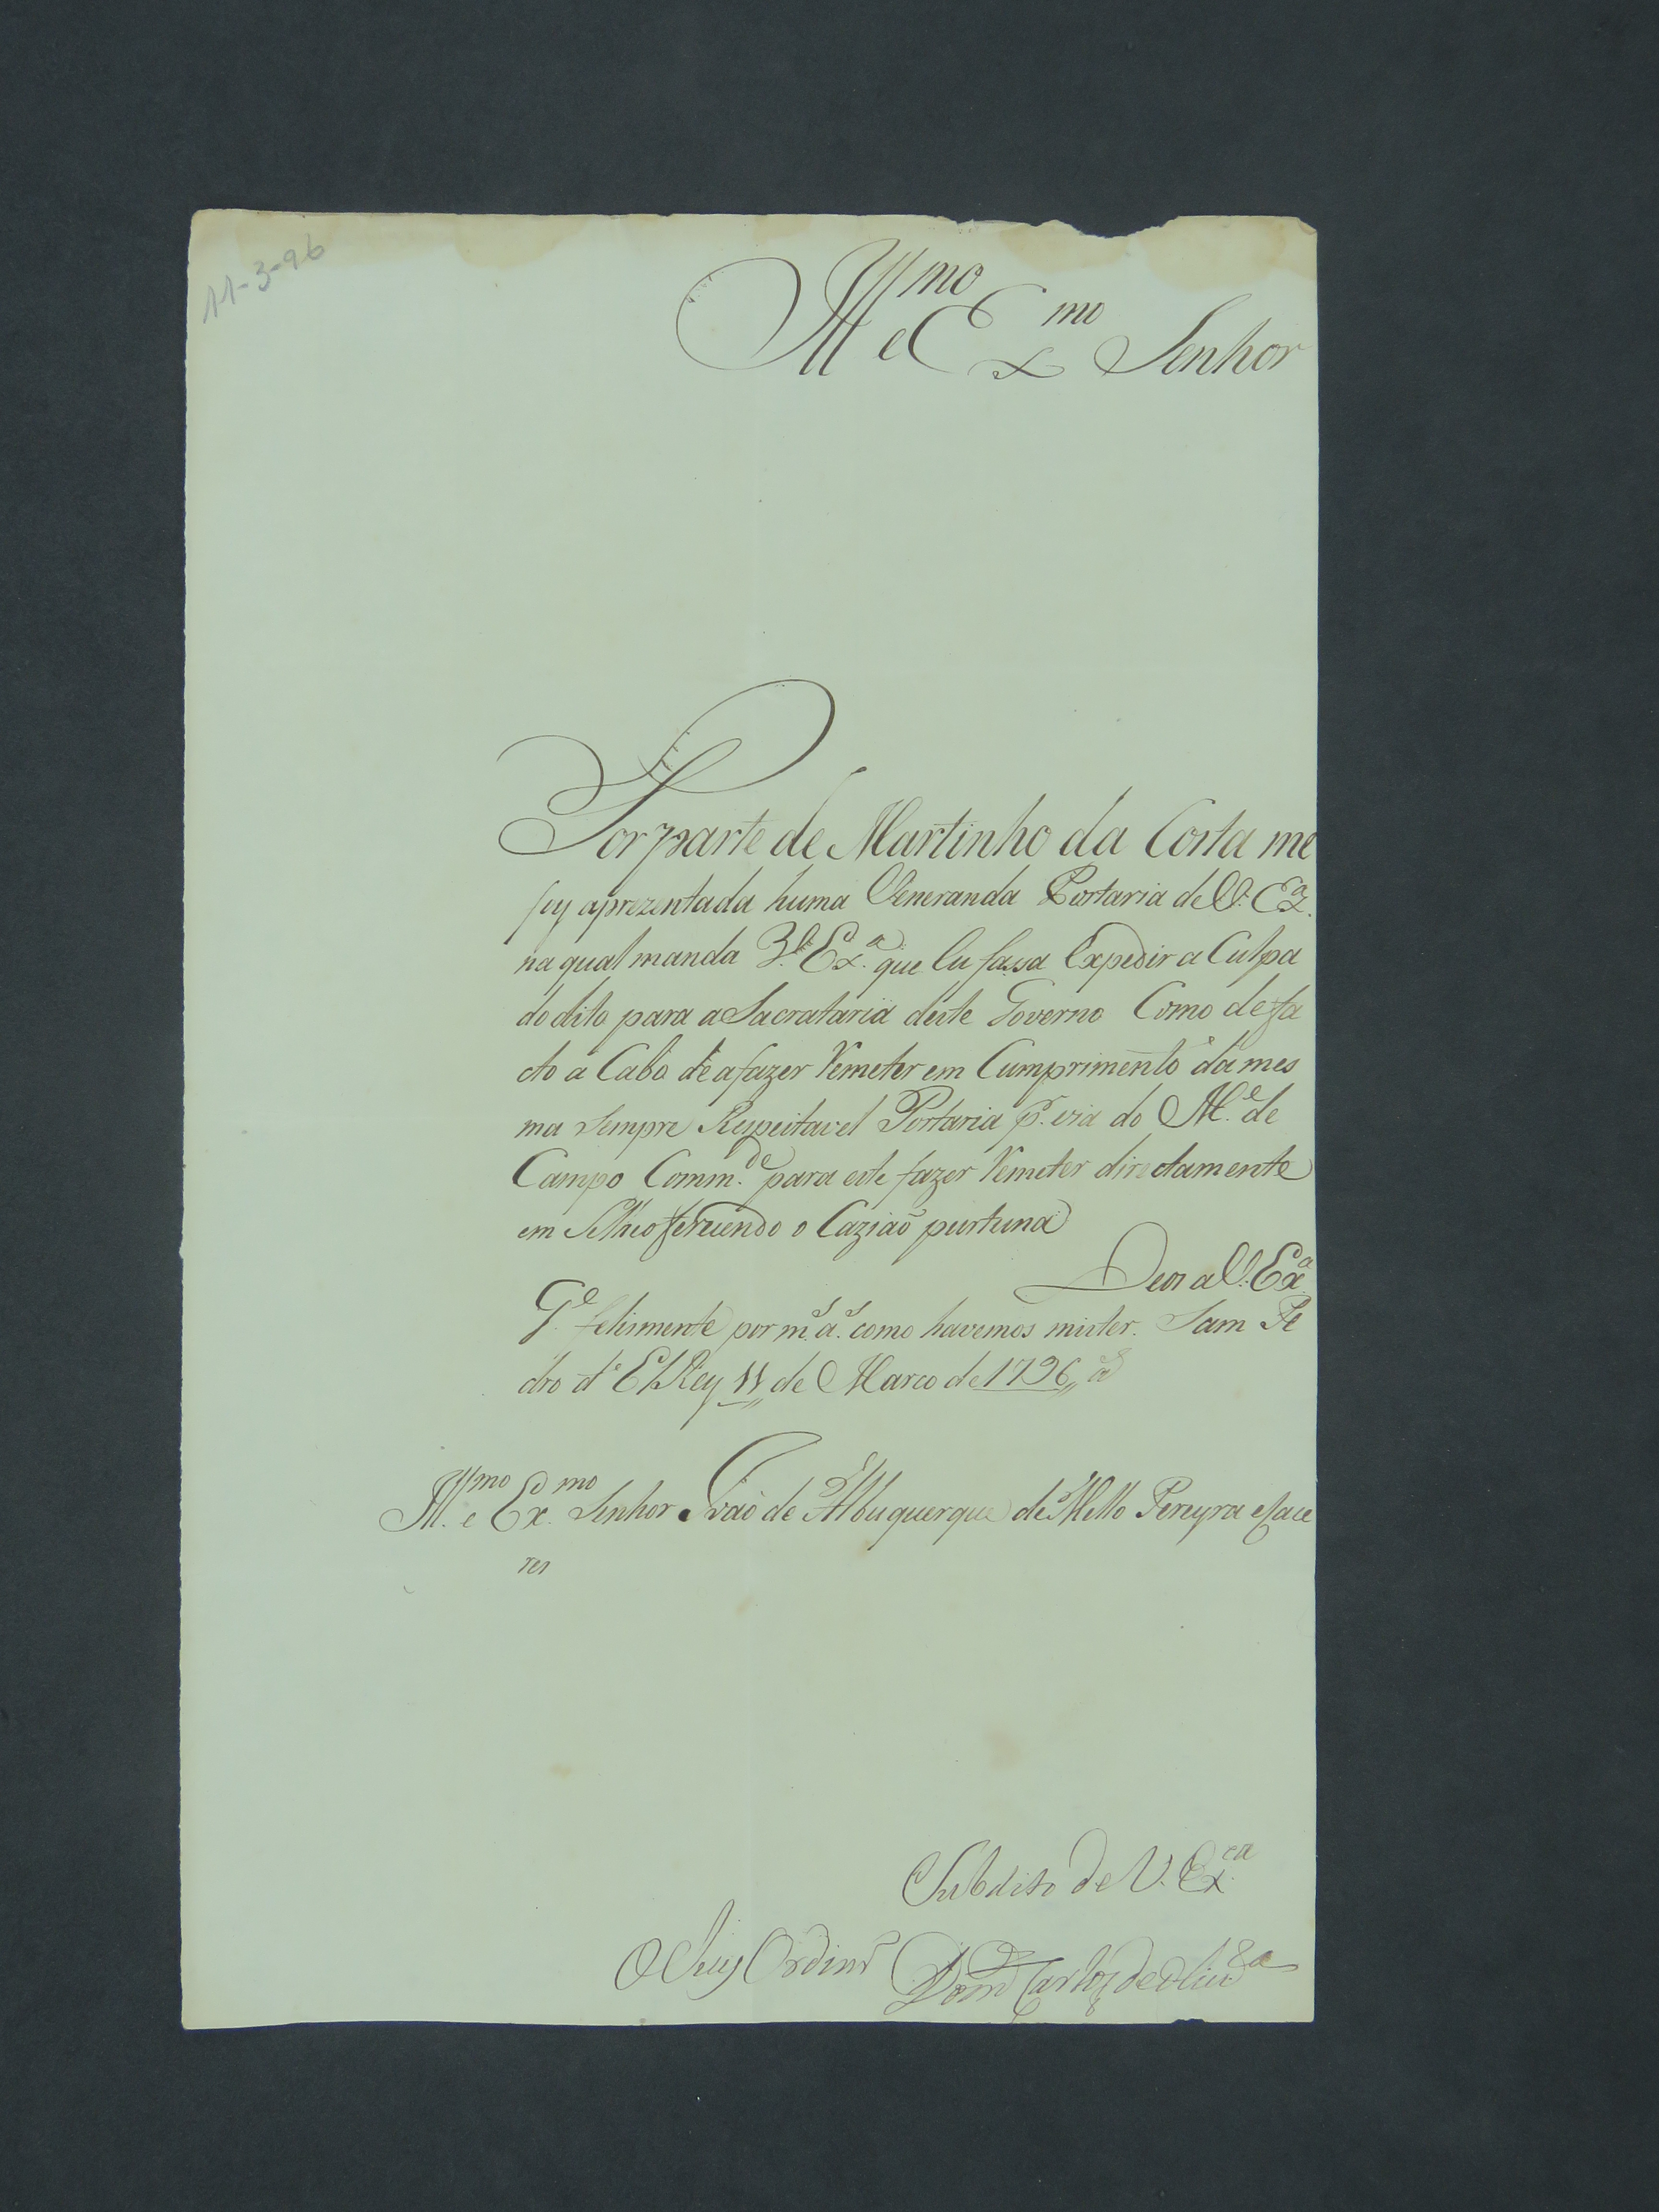 11-3-96
Ill.mo e Ex.mo Senhor
Por parte de Martinho da Costa me
foy aprezentada huma Veneranda Portaria de V. Ex.a
na qual manda V. Ex.a que Eu fassa Expedir a Culpa
do dito para a Sacrataria deste Governo Como de fa
cto a Cabo de a fazer Remeter em Cumprimento da mes
ma sempre Respeitavel Portaria p.r via do M.e de
Campo Comm.de para este fazer Remeter directamente
em o Caziaõ purtuna
Deos a V. Ex.a
G.e felismente por m.s a.s como havemos mister. Sam Pe
dro d' El Rey 11,, de Marco de 1796,,
Ill.mo e Ex.mo Senhor Joaõ de Albuquerque de Mello Pereyra e Cace
res
Subdito de V. Ex.ca
O Juiz Ordinr.o Dom.os Carlos de Oliv.ra